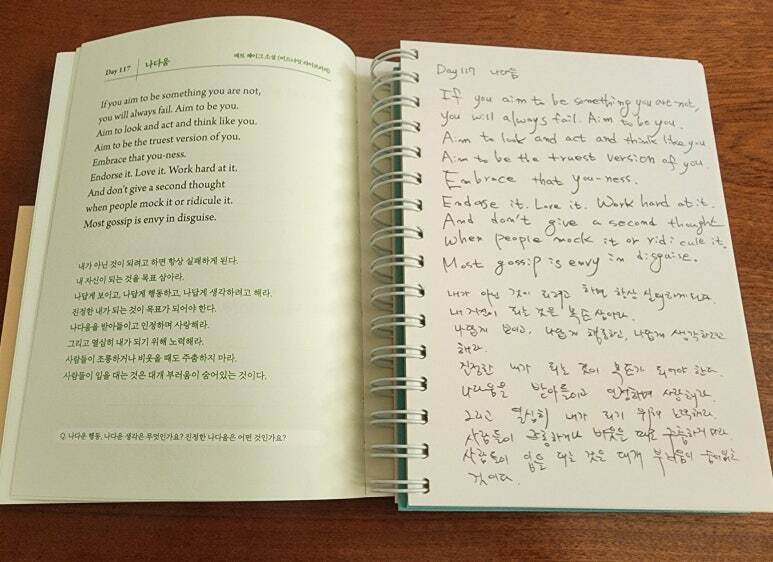 Day 117 | 나다움 매트 헤이그 소설 [미드나잇 라이브러리]
If you aim to be something you are not,
you will always fail. Aim to be you.
Aim to look and act and think like you.
Aim to be the truest version of you.
Embrace that you-ness.
Endorse it. Love it. Work hard at it.
And don't give a second thought
when people mock it or ridicule it.
Most gossip is envy in disguise.
내가 아닌 것이 되려고 하면 항상 실패하게 된다.
내 자신이 되는 것을 목표 삼아라.
나답게 보이고, 나답게 행동하고, 나답게 생각하려고 해라.
진정한 내가 되는 것이 목표가 되어야 한다.
나다움을 받아들이고 인정하며 사랑해라.
그리고 열심히 내가 되기 위해 노력해라.
사람들이 조롱하거나 비웃을 때도 주춤하지 마라.
사람들이 입을 대는 것은 대개 부러움이 숨어있는 것이다.
Q. 나다운 행동, 나다운 생각은 무엇인가요? 진정한 나다움은 어떤 것인가요?
Day 117 나다움
If you aim to be something you are not,
you will always fail. Aim to be you.
Aim to look and act and think like you
Aim to be the truest version of you.
Embrace that you-ness.
Endose it. Love it. Work hard at it.
And don't give a second thought
when people mock it or ridicule it.
Most gossip is envy in disguise.
내가 아닌 것이 되려고 하면 항상 실패하게 된다.
내 자신이 되는 것을 목표 삼아라.
나답게 보이고, 나답게 행동하고, 나답게 생각하려고
해라.
진정한 내가 되는 것이 목표가 되어야 한다.
나다움을 받아들이고 인정하며 사랑해라.
그리고 열심히 내가 되기 위해 노력해라.
사람들이 조롱하거나 비웃을 때도 주춤하지 마라.
사람들이 입을 대는 것은 대개 부러움이 숨어있는
것이다.